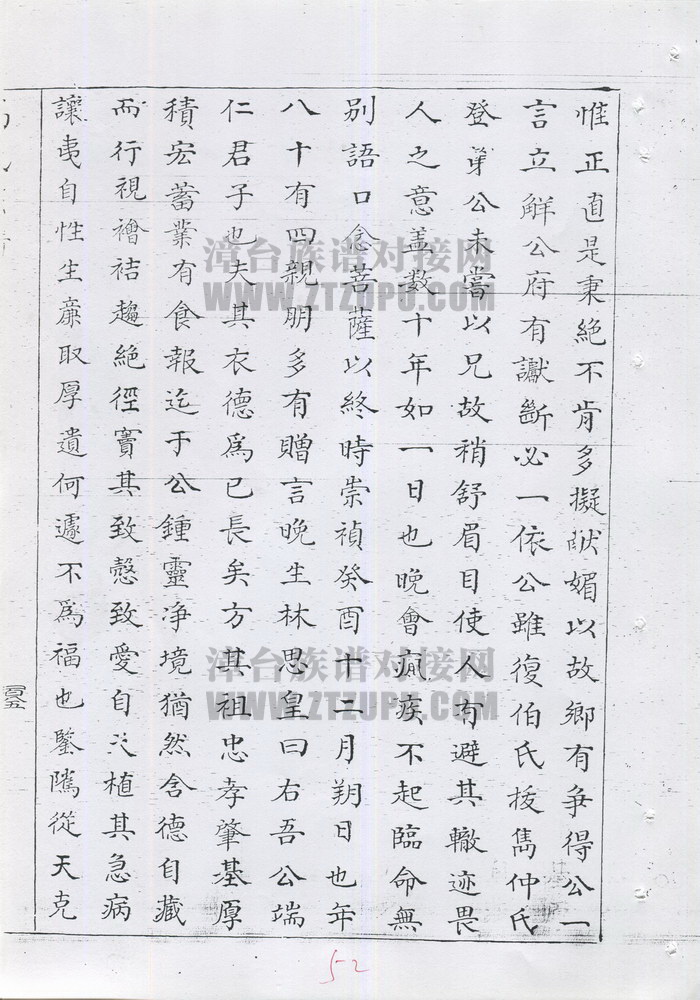 惟正直是秉絶不肯多擬猷媚以故鄉有爭得公一
言立觧公府有讞斷必一依公雖復伯氏拔雋仲氏
登第公未嘗以兄故稍舒眉目使人有避其轍迹畏
人之意盖数十年如一日也晚會瘋疾不起臨命無
别語口念菩薩以終時崇禎癸酉十二月朔日也年
八十有四親朋多有贈言晚生林思皇曰右吾公端
仁君子也夫其衣德爲已長矣方其祖忠孝肇基厚
積宏蓄業有食報迄于公鍾靈净境猶然含德自藏
而行視禬祮趨絶徑竇其致慤致愛自植其急病
讓夷自性生蘼取厚遺何遽不爲福也鑒隲從天克
百五
52
漳台族谱对接网
WWW.ZTZUPU.COM
漳台族谱对接网
WWW.ZTZUPU.COM